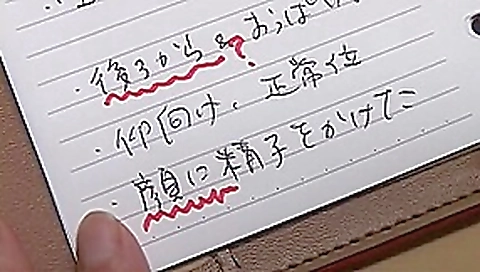 ・後ろから&?おっぱい
・仰向け、正常位
・顔に精子をかけた